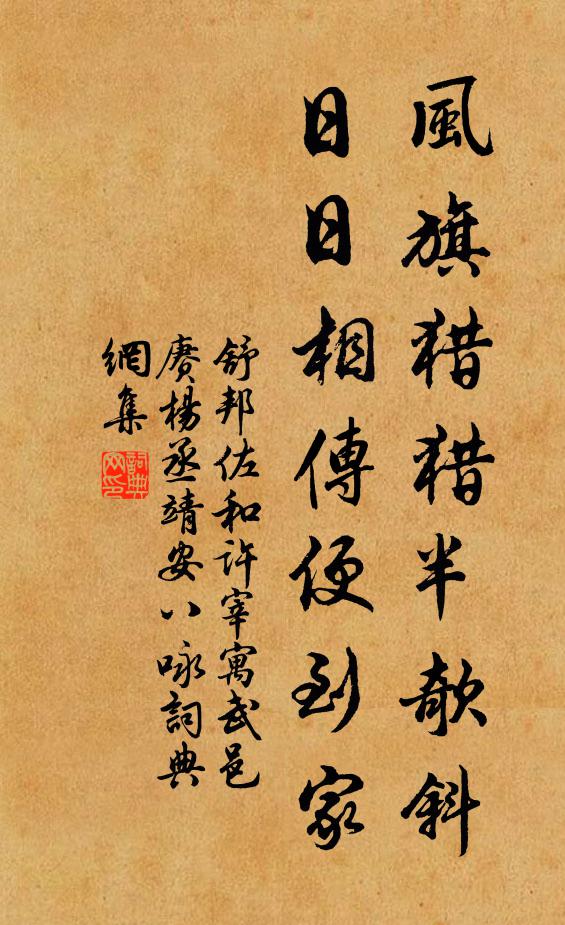 風旗猎猎半欹斜
日日相傳便到家
舒邦佐和許宰寓武邑
賡楊丞靖安八咏詞典
網集
詞典网印